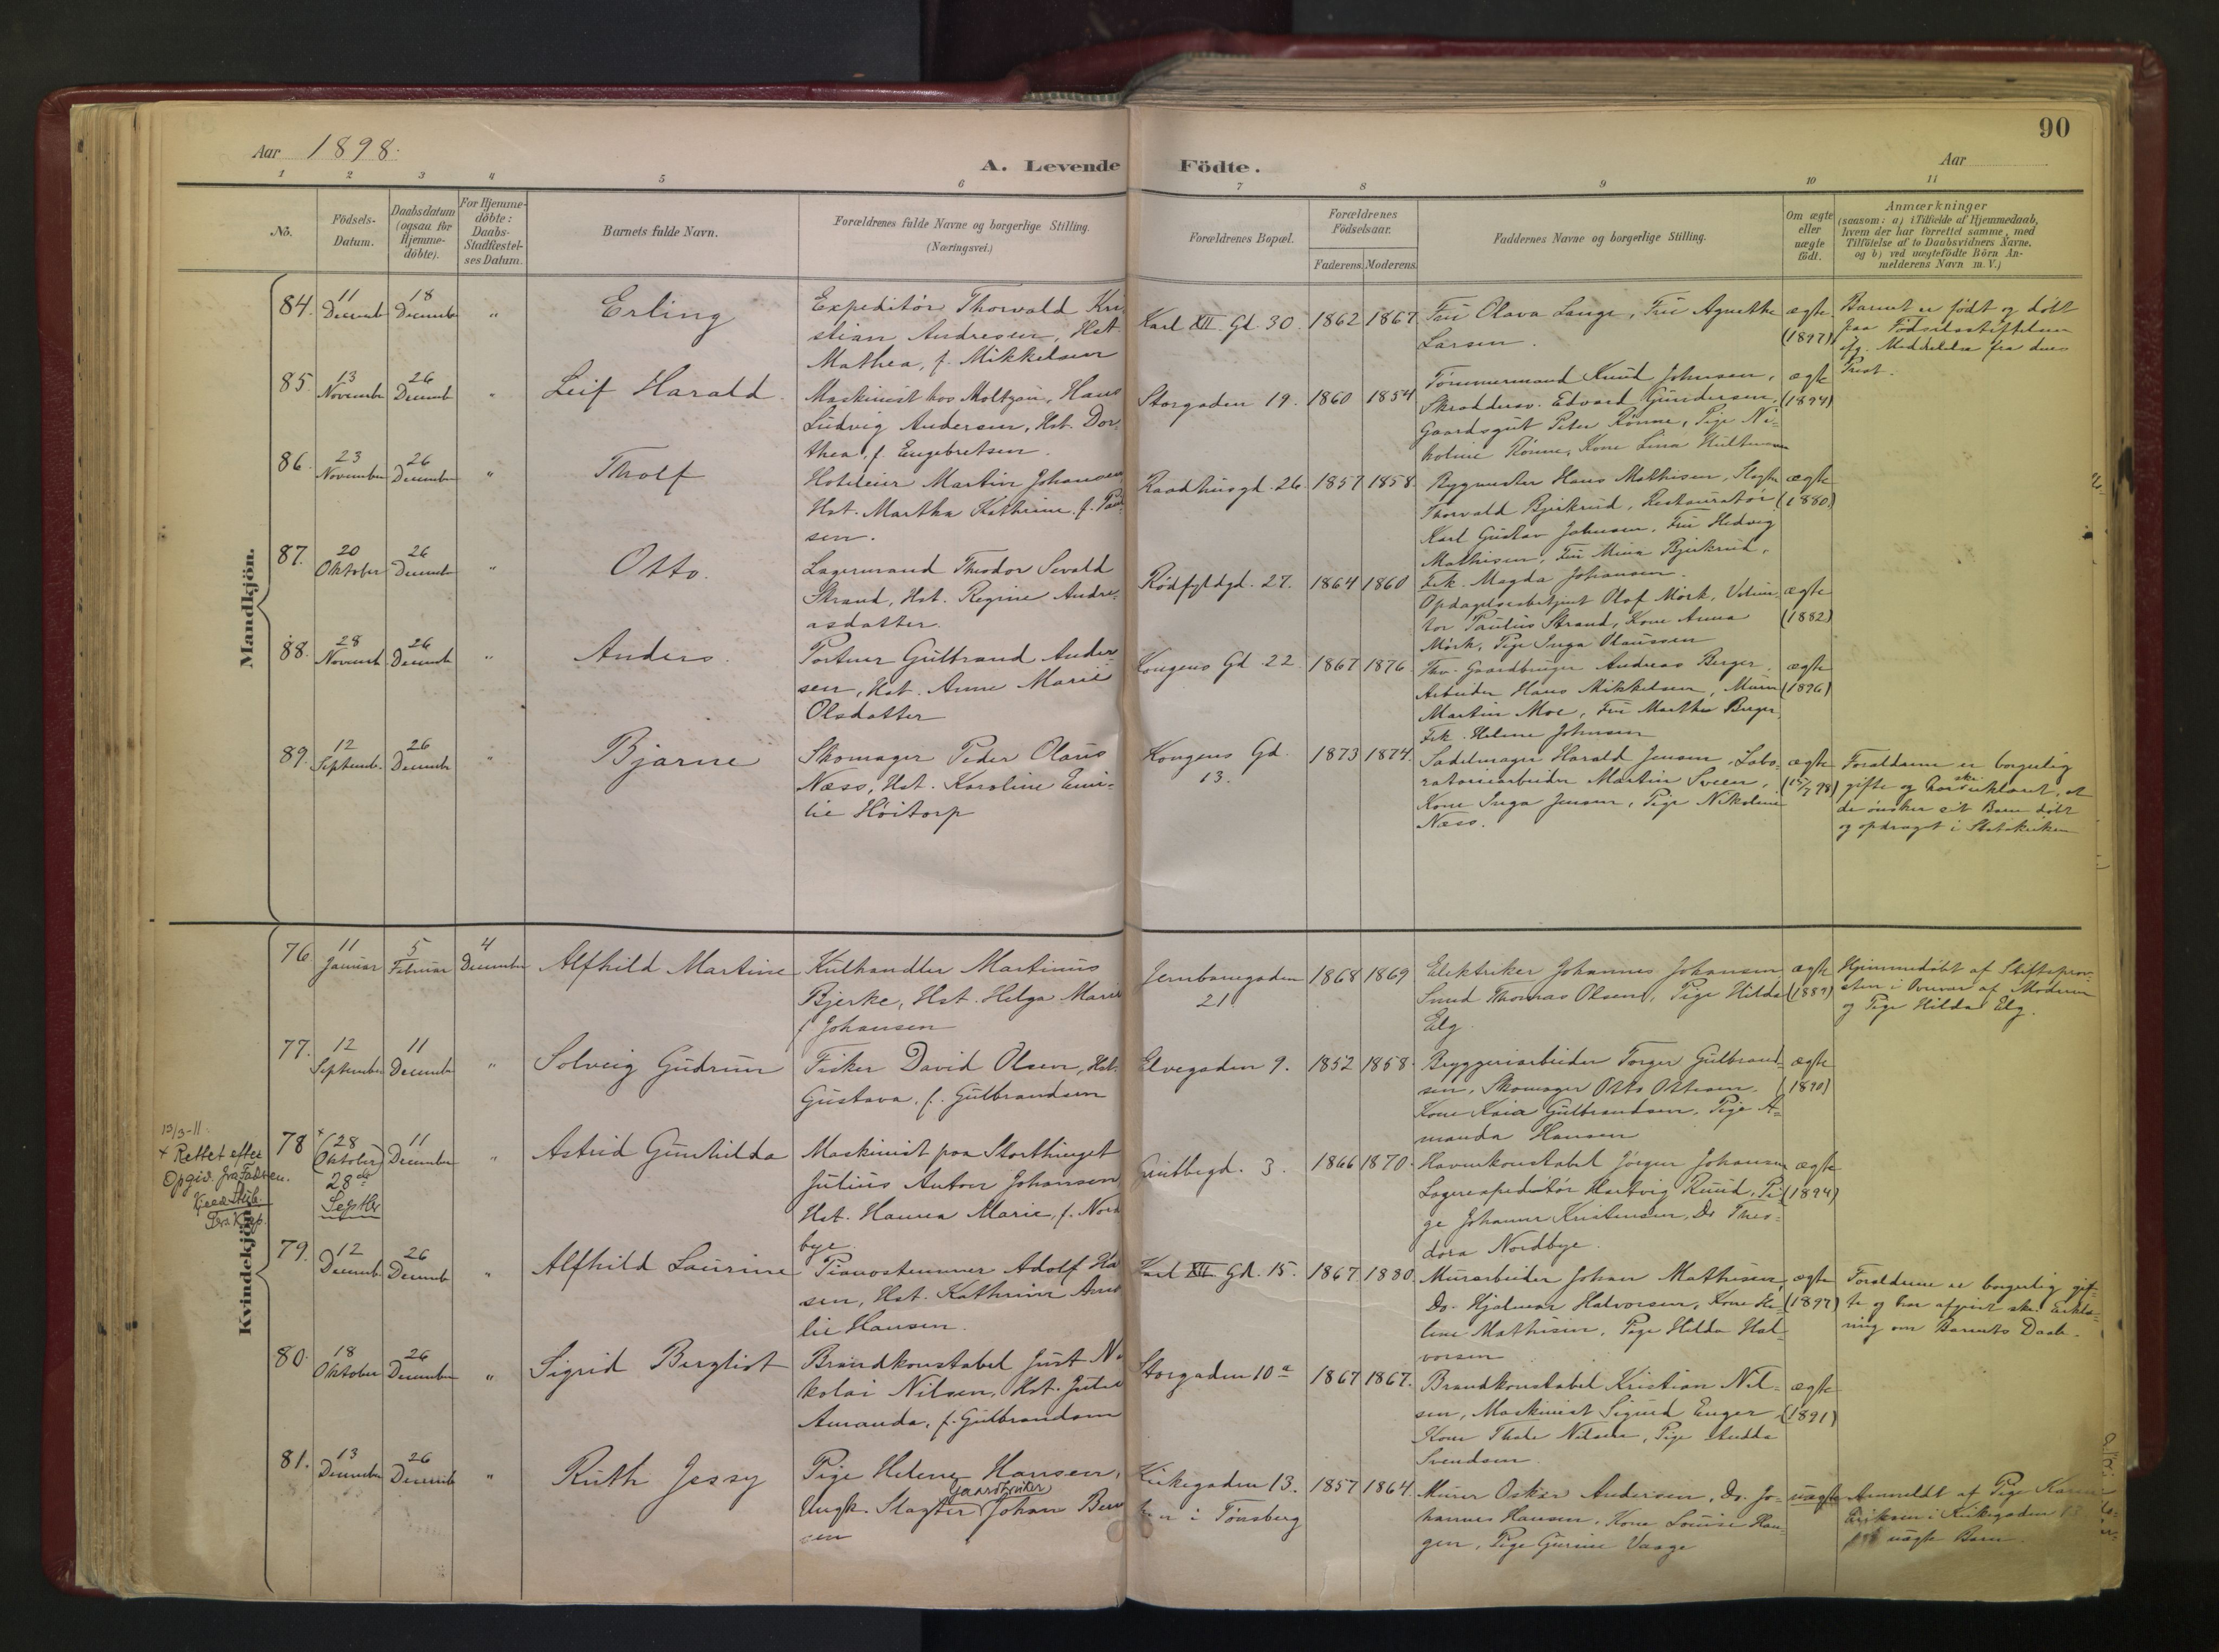 90
Aar 1898.
A. Levende Födte.
Aar
1 2 3 4 5 6 7 8 9 10 11
No.
Födsels-Datum.
Daabsdatum (ogsaa för Hjemme-döbte).
For Hjemme-döbte: Daabs-Stadfæstel-ses Datum.
Barnets fulde Navn.
Forældrenes fulde Navne og borgerlige Stilling.
(Næringsvei.)
Forældrenes Bopæl.
Forældrenes Födselsaar.
Faderens. Moderens.
Faddernes Navne og borgerlige Stilling.
Om ægte eller uægte födt.
Anmærkninger
(saasom: a) i Tilfælde af Hjemmedaab,
hvem der har forrettet samme, med
Tilföielse af to Daabsvidners Navne,
og b) ved uægtefödte Börn An-
melderens Navn m. V.)
Mandkjön.
84. 11 Decemb 18 Decemb " Erling
Expeditör Thorvald Kri
stian Andresen, Hst.
Mathea, f. Mikkelsen
Karl XII Gd. 30. 1862 1867
Fru Olava Lange, Fru Agnethe
Larsen.
ægte (1897)
Barnet er födt og döbt
paa Födselsstiftelsen
ifg. Meddelelse fra dens
Prest.
85. 13 Novembr 26 Decemb " Leif Harald.
Maskinist hos Moltzau, Hans
Ludvig Andersen, Hst. Dor
thea, f. Engebretsen.
Storgaden 19. 1860 1854
Tömmermand Knud Johnsen,
Skræddersv. Edvard Gundersen,
Gaardsgut Peter Rönne, Pige Ni-
koline Rönne, Kone Lina
ægte (1894)
86. 23 November 26 December " Tholf
Martin Johansen
Hst. Martha Kathrine, f. Paul
sen.
Raadhusgd. 26. 1857 1858
Bygmester Hans Mathisen, Slagter
Thorvald Bjerkerud, Restauratör
Karl Gustav Johnsen, Fru Hedvig
Mathisen, Fru Mina Bjerkerud,
Frk. Magda Johansen.
ægte (1880)
87. 20 Oktober 26 Decemb " Otto.
Lagermand Theodor Sevald
Strand, Hst. Regine Andre-
asdatter.
Rödfyldgd. 27. 1864 1860
Opdagelsesbetjent Olaf Mörk,
Paulus Strand, Kone Anna
Mörk, Pige Inga Olaussen
ægte (1882)
88. 28 Novemb 26 Decemb " Anders.
Portner Gulbrand Ander
sen, Hst. Anne Marie
Olsdatter
Kongens Gd 22. 1867 1876
Gaardbruger Andreas Berger,
Arbeider Hans Mikkelsen, Murer
Martin Moe, Fru Marthe Berger
Frk. Helene Johnsen
ægte (1896)
89. 12 Septemb. 26 Decemb " Bjarne
Skomager Peder Olaus
Næss, Hst. Karoline Emi-
lie Höitorp
Kongens Gd.
13.
1873 1874.
Sadelmager Harald Jensen, Labo-
ratoriearbeider Martin Sveen,
Kone Inga Jensen, Pige Nikoline
Næss.
ægte
Forældrene er borgerlig
gifte og har skr. erklæret, at
de önsker sit Barn döbt
og opdraget i Statskirken
Kvindekjön.
76. 11 Januar 5 Februar 4 December Alfhild Martine
Kulhandler Martinus
Bjerke, Hst. Helga Marie
f. Johansen
Jernbanegaden
21.
1868 1869
Elektriker Johannes Johansen
Smed Thomas Olsen, Pige Hilda
Elg.
ægte
Hjemmedöbt af Stiftsprov-
sten i Overvær af Moderen
og Pige Hilda Elg.
77. 12 September 11 Decemb " Solveig Gudrun
Fisker David Olsen, Hst.
Gustava, f. Gulbrandsen
Elvegaden 9. 1852 1858.
Bryggeriarbeider Torger Gulbrand-
sen, Skomager Otto
Kone Kaia Gulbrandsen, Pige A-
manda Hansen
ægte (1890)
13/3-11.
+ Rettet efter
Opgiv. fra Faderen.
78 + (28 Oktober) 28de Septbr 11 December " Astrid Gunhilda
Maskinist paa Storthinget
Julius Anton Johansen
Hst. Hanna Marie, f. Nord
bye.
3. 1866 1870.
Havnekonstabel Jörgen Johansen
Lagerexpeditör Hartvig Ruud, Pi-
ge Johanne Kristensen, Do Theo-
dora Nordbye.
ægte (1894)
79. 12 Decemb 26 Decemb " Alfhild Laurine
Pianostemmer Adolf Ha
sen, Hst. Kathrine
lie Hansen.
Karl XII Gd. 15. 1867 1880
Murarbeider Johan Mathisen,
Do. Hjalmar Halvorsen, Kone He-
lene Mathisen, Pige Hilda Hal-
vorsen
ægte (1897)
Forældrene er borgerlig gif-
te og har afgivet skr. Erklæ-
ring om Barnets Daab.
80. 18 Oktober 26 December " Sigrid Bergliot
Brandkonstabel Just Ni
kolai Nilsen, Hst. Julie
Amanda, f. Gulbrandsen
Storgaden 10a 1867 1867.
Brandkonstabel Kristian Nil-
sen, Maskinist Sigurd Enger,
Kone Thale Nilsen, Pige
Svendsen.
ægte (1891)
81. 13 December 26 Decemb " Ruth Jessy
Pige Helene Hansen,
Gaardbruker
Ungk. Slagter Johan Bern
sen i Tönsberg
Kirkegaden 13. 1857 1864.
Murer Oskar Andersen, Do. Jo-
hannes Hansen, Kone Louise Han-
gen, Pige Gurine Vaage
uægte
Anmeldt af Pige Karen
Eriksen i Kirkegaden 13
uægte Barn.